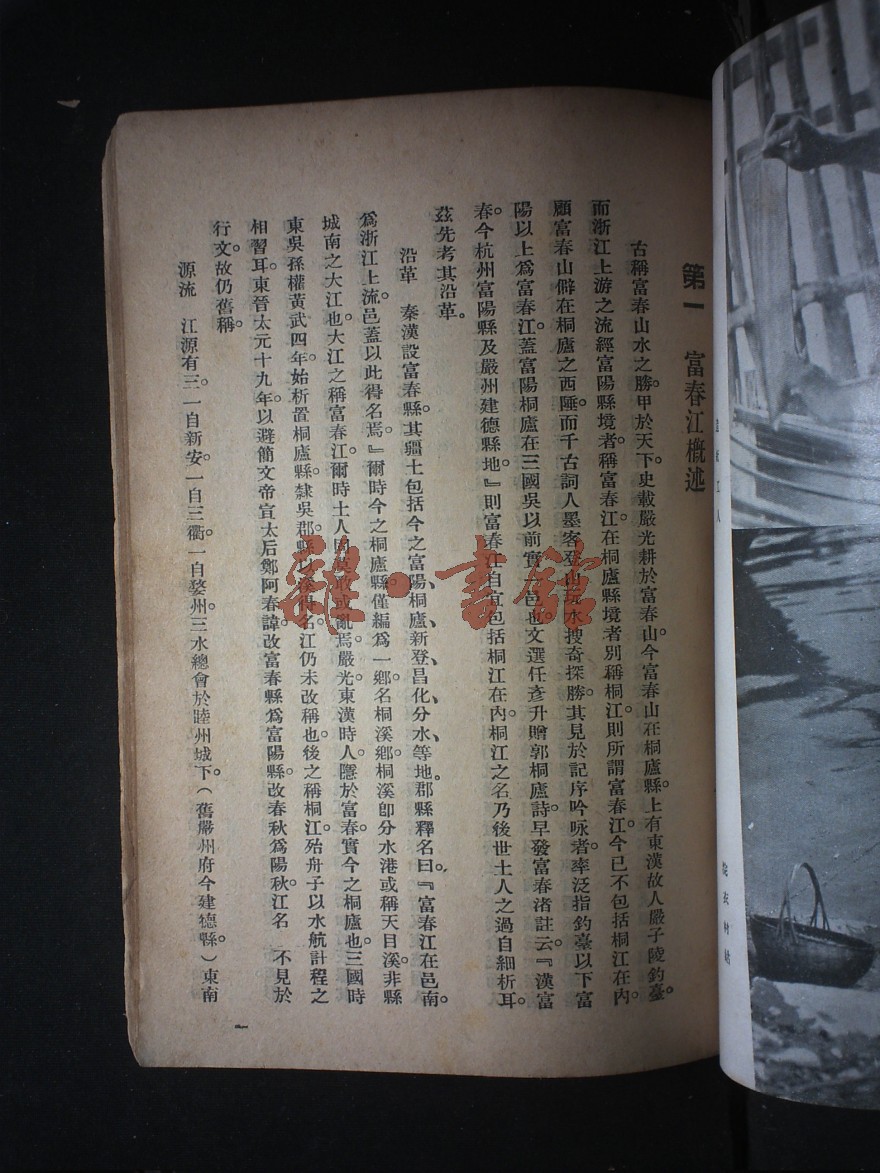 第一　富春江概述
古稱富春山水之勝。甲於天下。史載嚴光耕於富春山。今富春山在桐廬縣。上有東漢故人嚴子陵釣臺。
而浙江上游之流經富陽縣境者。稱富春江。在桐廬縣境者。別稱桐江。則所謂富春江。今已不包括桐江在內。
顧富春山僻在桐廬之西陲。而千古詞人墨客。登山玩水。搜奇探勝。其見於記序吟咏者。率泛指釣臺以下富
陽以上爲富春江。蓋富陽桐廬。在三國吳以前。實一邑也。文選任彥升贈郭桐廬詩。早發富春渚註云。『漢富
春。今杭州富陽縣及嚴州建德縣地。』則富春江自宜包括桐江在內。桐江之名。乃後世土人之過自細析耳。
茲先考其沿革。
沿革　秦漢設富春縣。其疆土包括今之富陽、桐廬、新登、昌化、分水、等地。郡縣釋名曰。『富春江在邑南。
爲浙江上流。邑蓋以此得名焉。』爾時今之桐廬縣。僅編爲一鄉。名桐溪鄉。桐溪卽分水港。或稱天目溪。非縣
城南之大江也。大江之稱富春江。爾時土人固莫敢或亂焉。嚴光東漢時人。隱於富春。實今之桐廬也。三國時
東吳孫權黃武四年。始析置桐廬縣。隸吳郡。縣以溪得名。江仍未改稱也。後之稱桐江。殆舟子以水航計程之
相習耳。東晉太元十九年。以避簡文帝宣太后鄭阿春諱。改富春縣爲富陽縣。改春秋爲陽秋。江名　不見於
行文。故仍舊稱。
源流　江源有三。一自新安。一自三衢。一自婺州。三水總會於睦州城下。（舊嚴州府今建德縣。）東南
一
雜·書館
工人
浣衣村姑